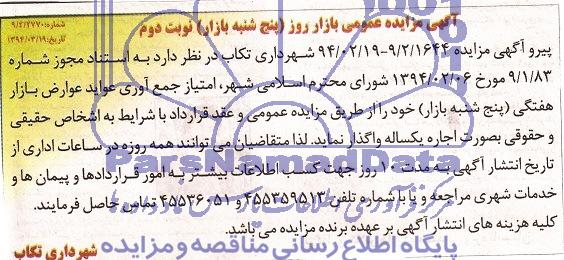 آگهی مزایده عمومی بازار روز (پنج شنبه بازار) نوبت دوم
شماره: ۹/۲/۲۷۷۰
تاریخ: ۱۳۹۴/۰۳/۱۹
پیرو آگهی مزایده ۹/۲/۱۶۴۴-۹۴/۰۲/۱۹ شهرداری تکاب در نظر دارد به استناد مجوز شماره
۹/۱/۸۳ مورخ ۱۳۹۴/۰۲/۰۶ شورای محترم اسلامی شهر، امتیاز جمع آوری عواید عوارض بازار
هفتگی (پنج شنبه بازار) خود را از طریق مزایده عمومی و عقد قرارداد با شرایط به اشخاص حقیقی
و حقوقی بصورت اجاره یکساله واگذار نماید. لذا متقاضیان می توانند همه روزه در ساعات اداری از
تاریخ انتشار آگهی به مدت ۱۰ روز جهت کسب اطلاعات بیشتر به امور قراردادها و پیمان ها و
خدمات شهری مراجعه و یا با شماره تلفن ۴۵۵۳۵۹۵۱۳ و ۴۵۵۳۶۰۵۱ تماس حاصل فرمایند.
کلیه هزینه های انتشار آگهی بر عهده برنده مزایده می باشد.
شهرداری تکاب
ParsNamadData
مرکز فرآوری اطلاعات پارس نماد داده ها
پایگاه اطلاع رسانی مناقصه و مزایده